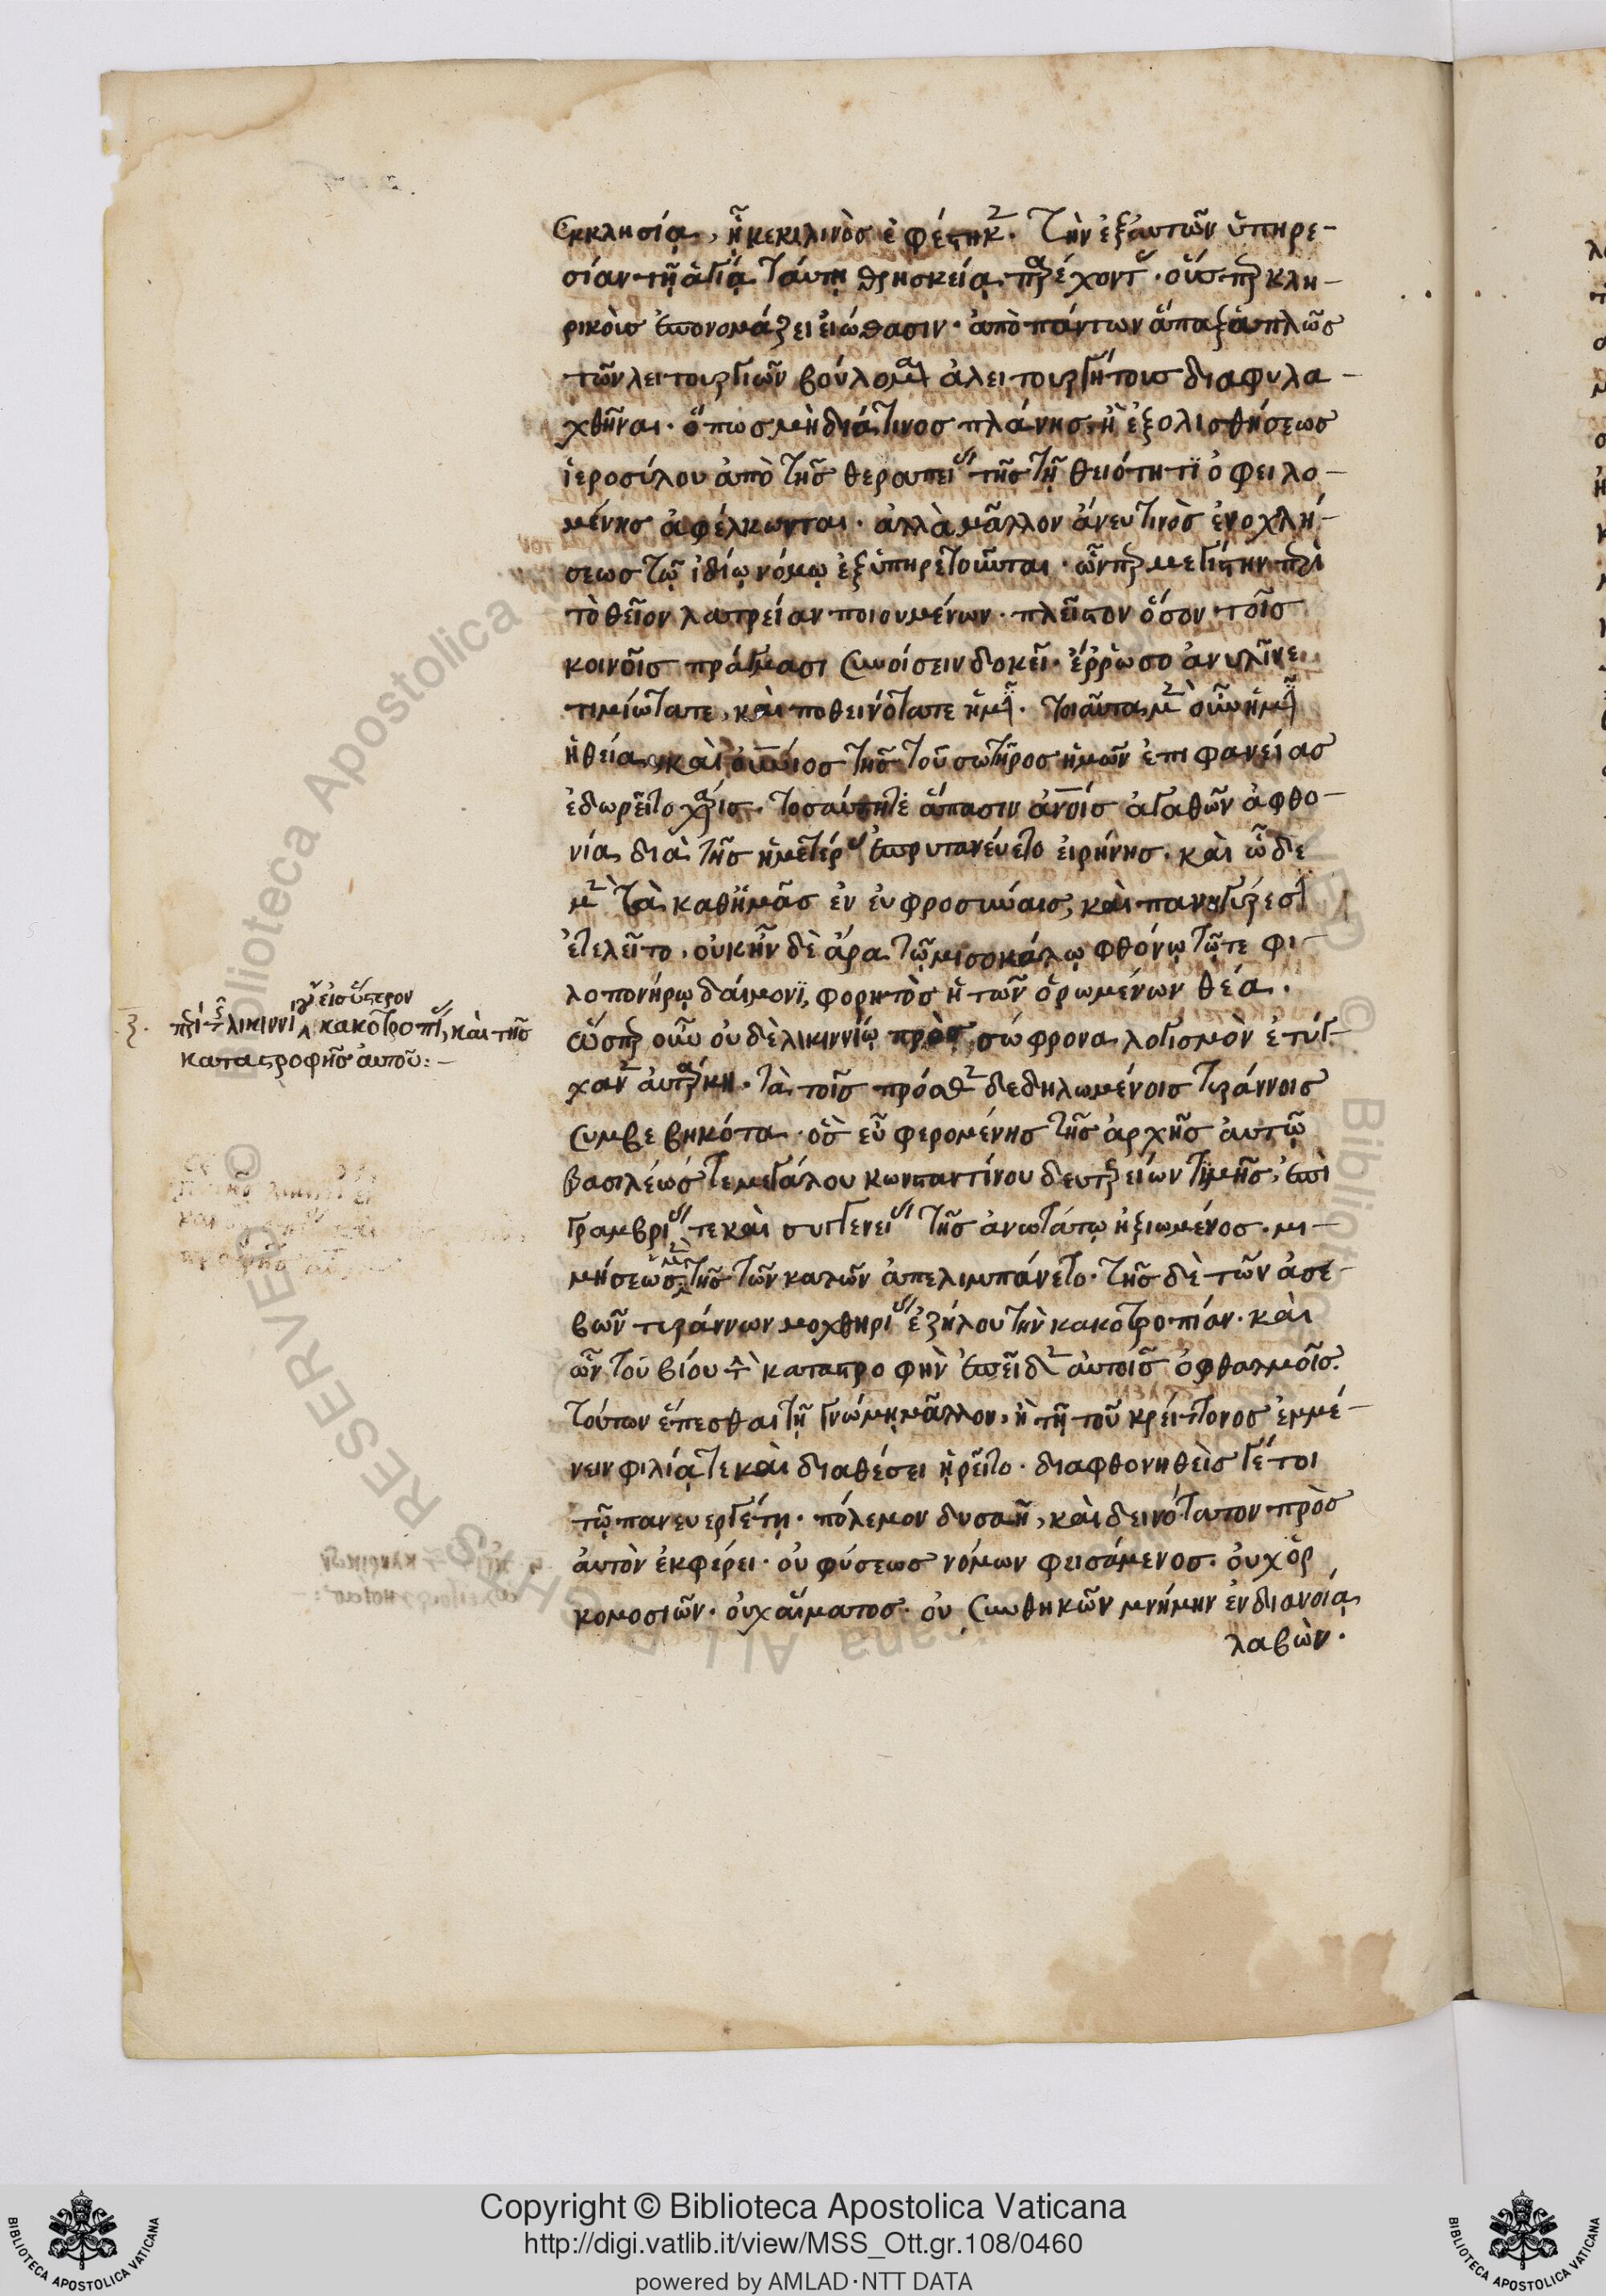 ἐκκλησίᾳ, ᾗ κεκιλινὸσ ἐφέστηκε. τὴν ἐξ αὐτῶν ὑπηρε-
σίαν τῇ ἁγίᾳ ταύτῃ θρησκείᾳ παρέχοντας. οὕσπερ κλη-
ρικοὺσ ἐπονομάζειν εἰώθασιν. ἀπὸ πάντων ἅπαξ ἁπλῶσ
τῶν λειτουργιῶν βούλομαι ἀλειτουργήτουσ διαφυλα-
χθῆναι. ὅπωσ μὴ διά τινοσ πλάνησ, ἢ ἐξολισθήσεωσ
ἱεροσύλου ἀπὸ τῆσ θεραπείασ τῆσ τῇ θειότητι ὀφειλο-
μένησ ἀφέλκωνται. ἀλλὰ μᾶλλον ἄνευ τινὸσ ἐνοχλή-
σεωσ τῷ ἰδίῳ νόμῳ ἐξυπηρετοῦνται. ὧνπερ μεγίστην περὶ
τὸ θεῖον λατρείαν ποιουμένων. πλεῖστον ὅσον τοῖσ
κοινοῖσ πράγμασι συνοίσειν δοκεῖ. ἔρρωσο ἀνυλῖνε
τιμιώτατε, καὶ ποθεινότατε ἡμῖν. τοιαῦτα μὲν οὖν ἡμῖν
ἡ θεία, καὶ οὐράνιοσ τῆσ τοῦ σωτῆροσ ἡμῶν ἐπιφανείασ
ἐδωρεῖτο χάρισ. τοσαύτη τὲ ἅπασιν ἀνοίσ ἀγαθῶν ἀφθο-
νία διὰ τῆσ ἡμετέρασ ἐπρυτανεύετο εἰρήνησ. καὶ ὧδε
μὲν τὰ καθ' ἡμᾶσ ἐν εὐφροσύναισ, καὶ πανηγύρεσιν
ἐτελεῖτο. οὐκ ἦν δὲ ἄρα τῷ μισοκάλῳ φθόνῳ τῷτε φι-
λοπονήρῳ δαίμονϊ, φορητὸσ ἡ τῶν ὁρωμένων θέα.
ὥσπερ οὖν οὐδὲ λικιννίῳ πρὸσ σώφρονα λογισμὸν ἐτύγ-
χανεν αὐτάρκη. τὰ τοῖσ πρόσθεν δεδηλωμένοισ τυράννοισ
συμβεβηκότα. ὃσ εὖ φερομένησ τῆσ ἀρχῆσ αὐτῷ
βασιλέωσ τε μεγάλου κωνσταντίνου δευτερείων τιμῆσ, ἐπὶ
γαμβρίασ τε καὶ συγγενείασ τῆσ ἀνωτάτω ἠξιωμένοσ. μι-
μήσεωσ μὲν τῆσ τῶν καλῶν ἀπελιμπάνετο. τῆσ δὲ τῶν ἀσε-
βῶν τυράννων μοχθηρίασ ἐζήλου τὴν κακοτροπίαν. καὶ
ὧν τοῦ βίου τὴν καταστροφὴν ἐπεῖδεν αὐτοῖσ ὀφθαλμοῖσ.
τούτων ἕπεσθαι τῇ γνώμῃ μᾶλλον, ἢ τῇ τοῦ κρείττονοσ ἐμμέ-
νειν φιλίᾳ τε καὶ διαθέσει ᾑρεῖτο. διαφθονηθεὶσ γέτοι
τῷ πανευεργέτῃ. πόλεμον δυσαγῆ, καὶ δεινότατον πρὸσ
αὐτὸν ἐκφέρει. οὐ φύσεωσ νόμων φεισάμενοσ. οὐχ ὁρ
κομοσιῶν. οὐχ αἵματοσ. οὐ συνθηκῶν μνήμην ἐν διανοίᾳ
λαβὼν.
εἰσύστερον
περὶ τῆς λικιννίου κακοτροπίας, καὶ τῆσ
καταστροφῆσ αὐτοῦ:-
Copyright © Biblioteca Apostolica Vaticana
http://digi.vatlib.it/view/MSS_Ott.gr.108/0460
powered by AMLAD·NTT DATA